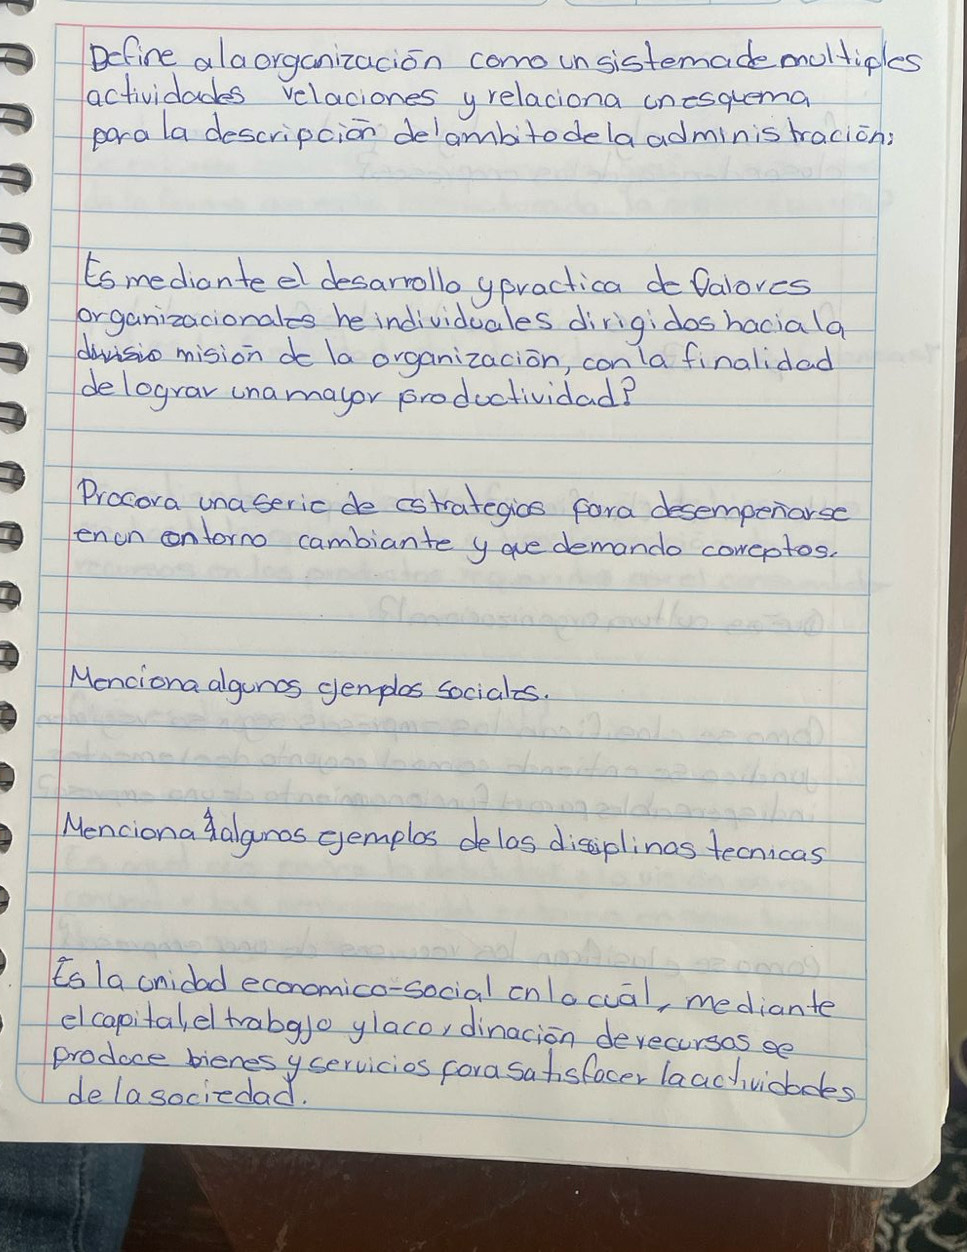 Define a la organización como un sistema de multiples
actividades relaciones y relaciona un esquema
para la descripción del ambito de la administración:
Es mediante el desarrollo y practica de Valores
organizacionales he individuales dirigidos hacia la
mision de la organización, con la finalidad
de lograr una mayor productividad?
Procura una serie de estrategias para desempeñarse
en un entorno cambiante y que demanda conceptos.
Menciona algunos ejemplos sociales.
Menciona 4 algunos ejemplos de las disiplinas tecnicas
Es la unidad economico-social en la cuál, mediante
el capital, el trabajo y la cordinación de recursos se
produce bienes y servicios para satisfacer la actividades
de la sociedad.